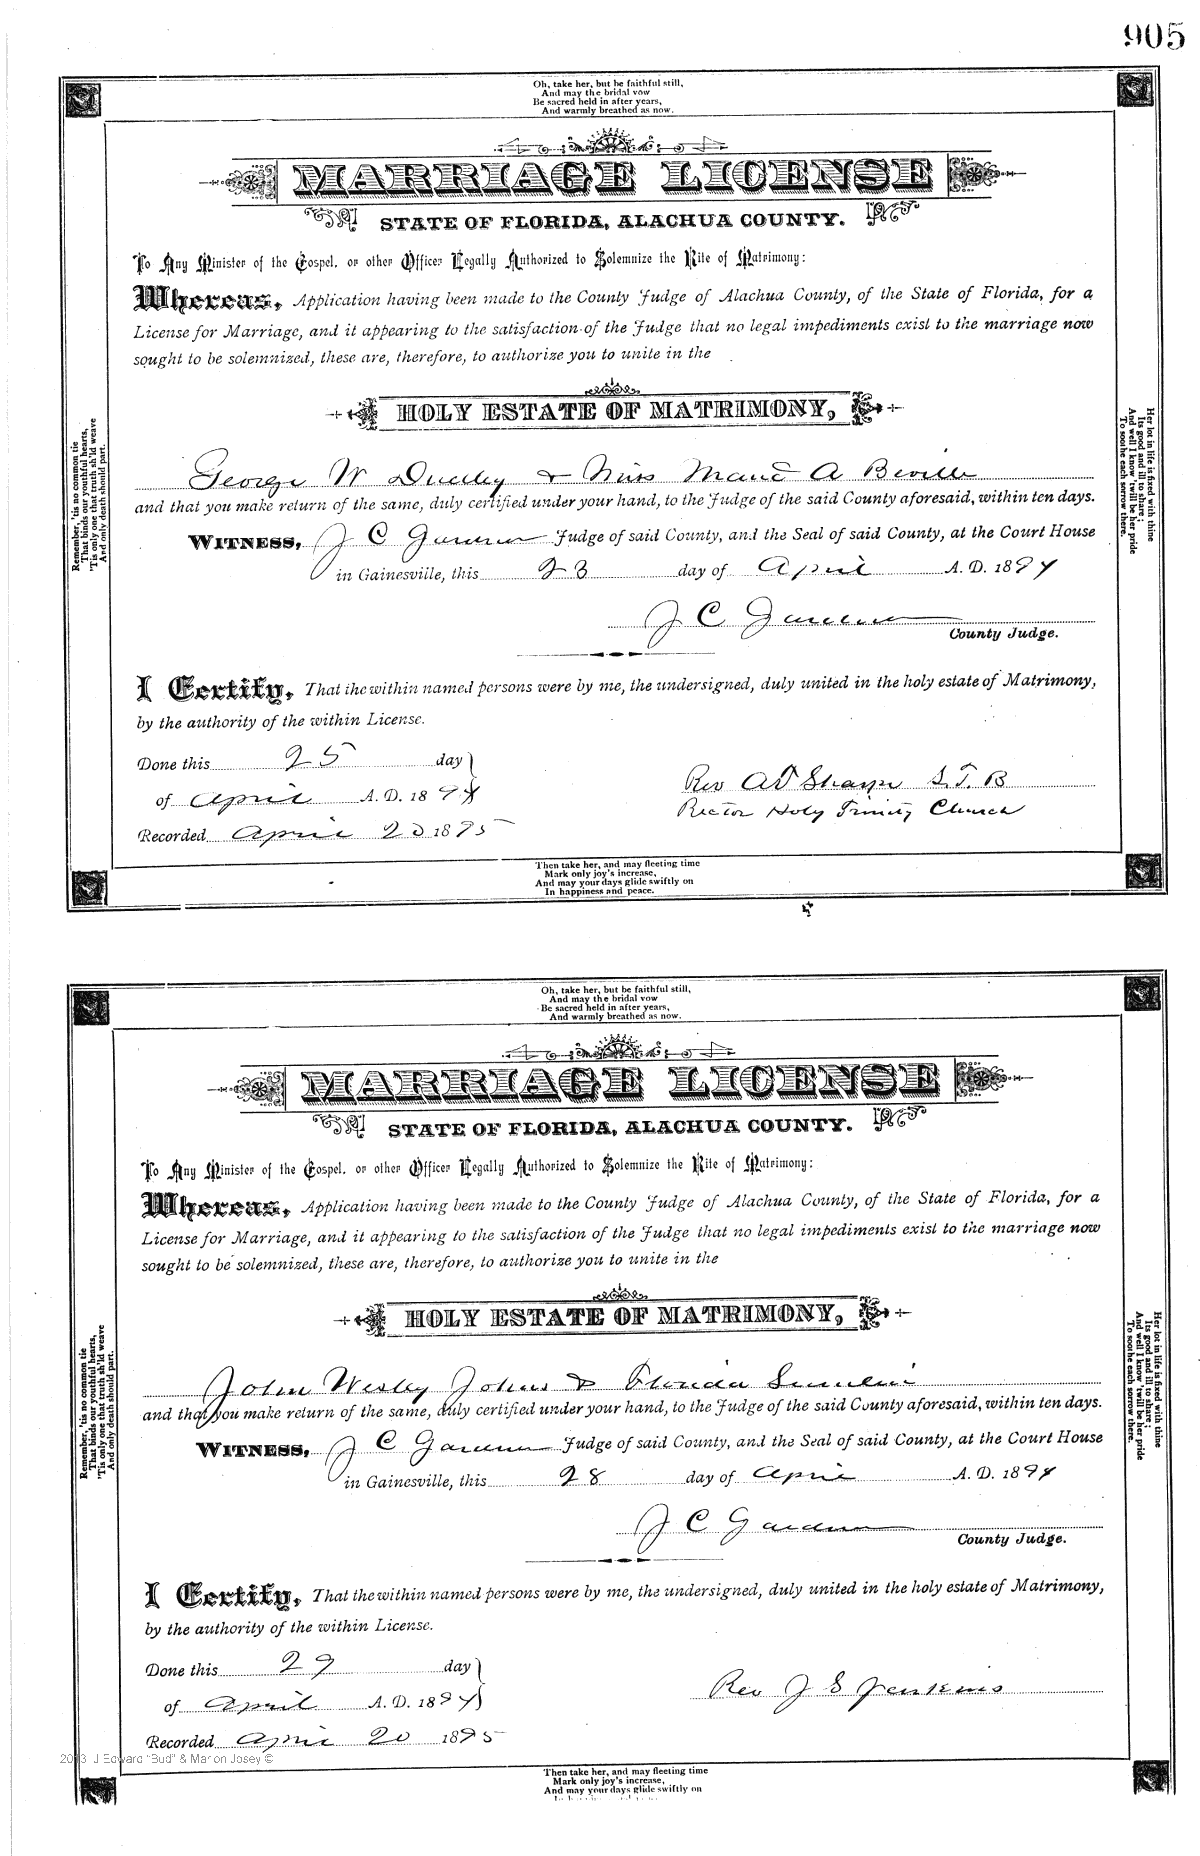 905
Oh, take her, but be faithful still,
And may the bridal vow
Be sacred held in after years,
And warmly breathed as now.
MARRIAGE LICENSE
STATE OF FLORIDA, ALACHUA COUNTY.
To Any Minister of the Gospel, or other Officer Legally Authorized to Solemnize the Rite of Matrimony:
Whereas, Application having been made to the County Judge of Alachua County, of the State of Florida, for a
License for Marriage, and it appearing to the satisfaction of the Judge that no legal impediments exist to the marriage now
sought to be solemnized, these are, therefore, to authorize you to unite in the
HOLY ESTATE OF MATRIMONY,
George W Dudley & Miss Maud A Beville
and that you make return of the same, duly certified under your hand, to the Judge of the said County aforesaid, within ten days.
WITNESS, J C Gardner Judge of said County, and the Seal of said County, at the Court House
in Gainesville, this 23 day of April A. D. 1894
J C Gardner
County Judge.
I Certify, That the within named persons were by me, the undersigned, duly united in the holy estate of Matrimony,
by the authority of the within License.
Done this 25 day
of April A. D. 1894
Rev Sharpe S.T.B
Rector Holy Trinity Church
Recorded April 20 1895
Remember, 'tis no common tie
That binds our youthful hearts,
'Tis only one that truth sh'ld weave
And only death should part.
Her lot in life is fixed with thine
Its good and ill to share;
And well I know 'twill be her pride
To soothe each sorrow there.
Then take her, and may fleeting time
Mark only joy's increase,
And may your days glide swiftly on
In happiness and peace.
Oh, take her, but be faithful still,
And may the bridal vow
Be sacred held in after years,
And warmly breathed as now.
MARRIAGE LICENSE
STATE OF FLORIDA, ALACHUA COUNTY.
To Any Minister of the Gospel, or other Officer Legally Authorized to Solemnize the Rite of Matrimony:
Whereas, Application having been made to the County Judge of Alachua County, of the State of Florida, for a
License for Marriage, and it appearing to the satisfaction of the Judge that no legal impediments exist to the marriage now
sought to be solemnized, these are, therefore, to authorize you to unite in the
HOLY ESTATE OF MATRIMONY,
John Wesley Johns & Florida
and that you make return of the same, duly certified under your hand, to the Judge of the said County aforesaid, within ten days.
WITNESS, J C Gardner Judge of said County, and the Seal of said County, at the Court House
in Gainesville, this 28 day of April A. D. 1894
J C Gardner
County Judge.
I Certify, That the within named persons were by me, the undersigned, duly united in the holy estate of Matrimony,
by the authority of the within License.
Done this 29 day
of April A. D. 1894
Rev J S Jenkins
Recorded April 20 1895
Remember, 'tis no common tie
That binds our youthful hearts,
'Tis only one that truth sh'ld weave
And only death should part.
Her lot in life is fixed with thine
Its good and ill to share;
And well I know 'twill be her pride
To soothe each sorrow there.
2013 J Edward "Bud" & Marion Josey ©
Then take her, and may fleeting time
Mark only joy's increase,
And may your days glide swiftly on